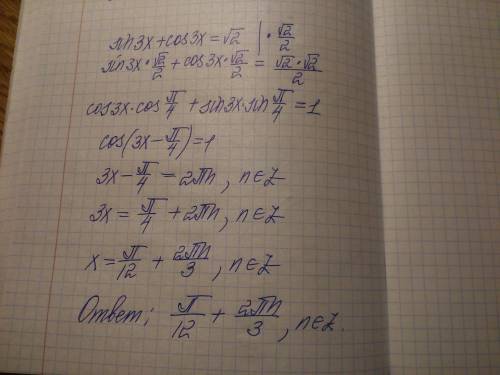 sin3x + cos3x = √2 | · √2/2
sin3x · √2/2 + cos3x · √2/2 = √2 · √2/2
cos3x · cos π/4 + sin3x · sin π/4 = 1
cos(3x − π/4) = 1
3x − π/4 = 2πn, n∈Z
3x = π/4 + 2πn, n∈Z
x = π/12 + 2πn/3, n∈Z
Ответ: π/12 + 2πn/3, n∈Z.